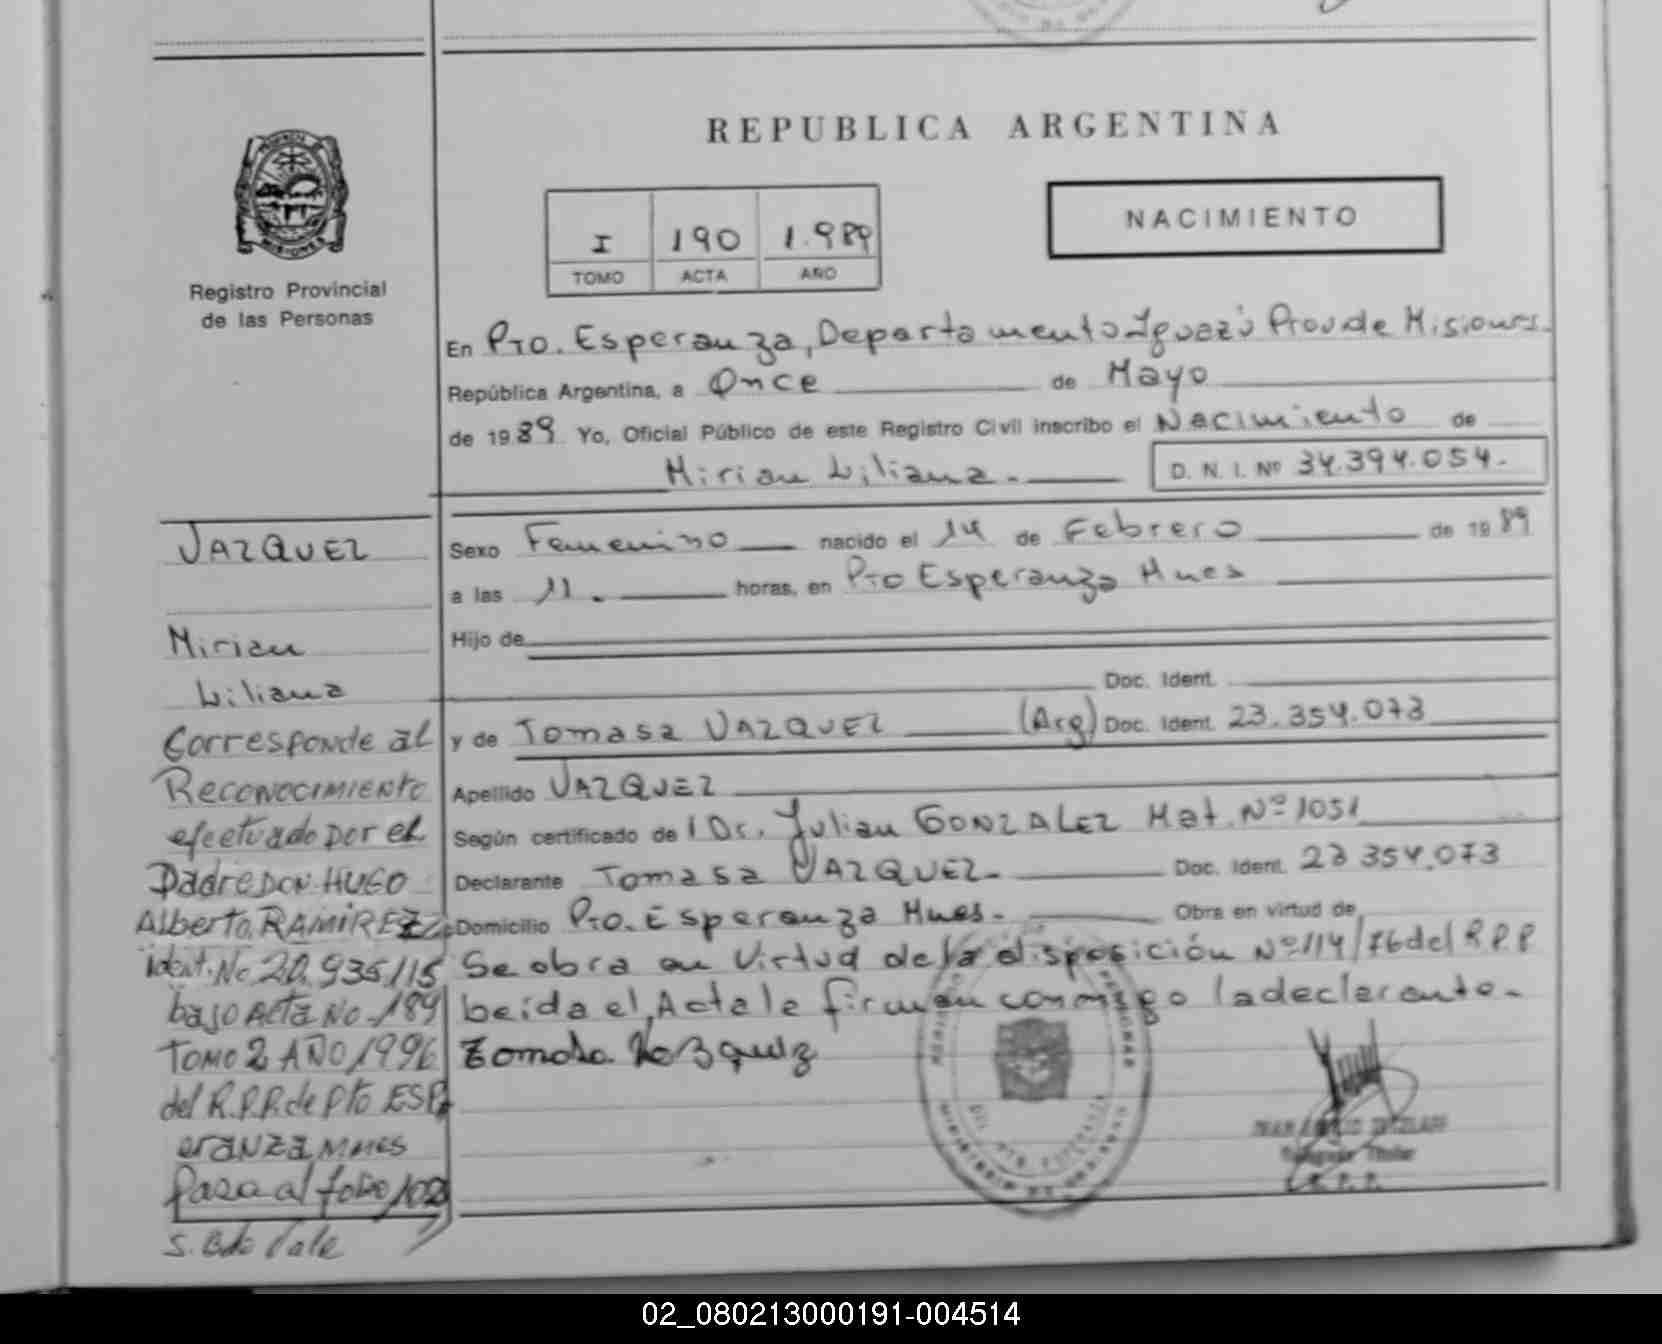 REPUBLICA ARGENTINA
NACIMIENTO
I 190 1.989
TOMO ACTA AÑO
MISIONES
Registro Provincial
de las Personas
En Pto. Esperanza, Departamento Iguazú Prov de Misiones.
República Argentina, a Once de Mayo
de 1989 Yo, Oficial Público de este Registro Civil inscribo el Nacimiento de
Mirian Liliana.- D. N. I. Nº 34.394.054.-
VAZQUEZ
Mirian
Liliana
Sexo Femenino nacido el 14 de Febrero de 1989
a las 11. horas, en Pto Esperanza Mnes
Hijo de
Doc. Ident.
y de Tomasa VAZQUEZ (Arg) Doc. Ident. 23.354.073
Apellido VAZQUEZ
Según certificado de l Dr. Julian GONZALEZ Mat. Nº 1051
Declarante Tomasa VAZQUEZ.- Doc. Ident. 23 354.073
Domicilio Pto. Esperanza Mnes.- Obra en virtud de
Se obra en Virtud de la disposición Nº 114/76 del R.P.P
Leida el Acta le firman conmigo la declarante.-
Tomasa Vazquez
Corresponde al
Reconocimiento
efectuado por el
Padre DON HUGO
Alberto RAMIREZ
ident. No 20.935115
bajo Acta No 189
TOMO 2 AÑO 1996
del R.P.P. de Pto ESP
eranza MNES
Pasa al folio 102
S. Bdo Vale
Delegado Titular
R. P. P.
02_080213000191-004514